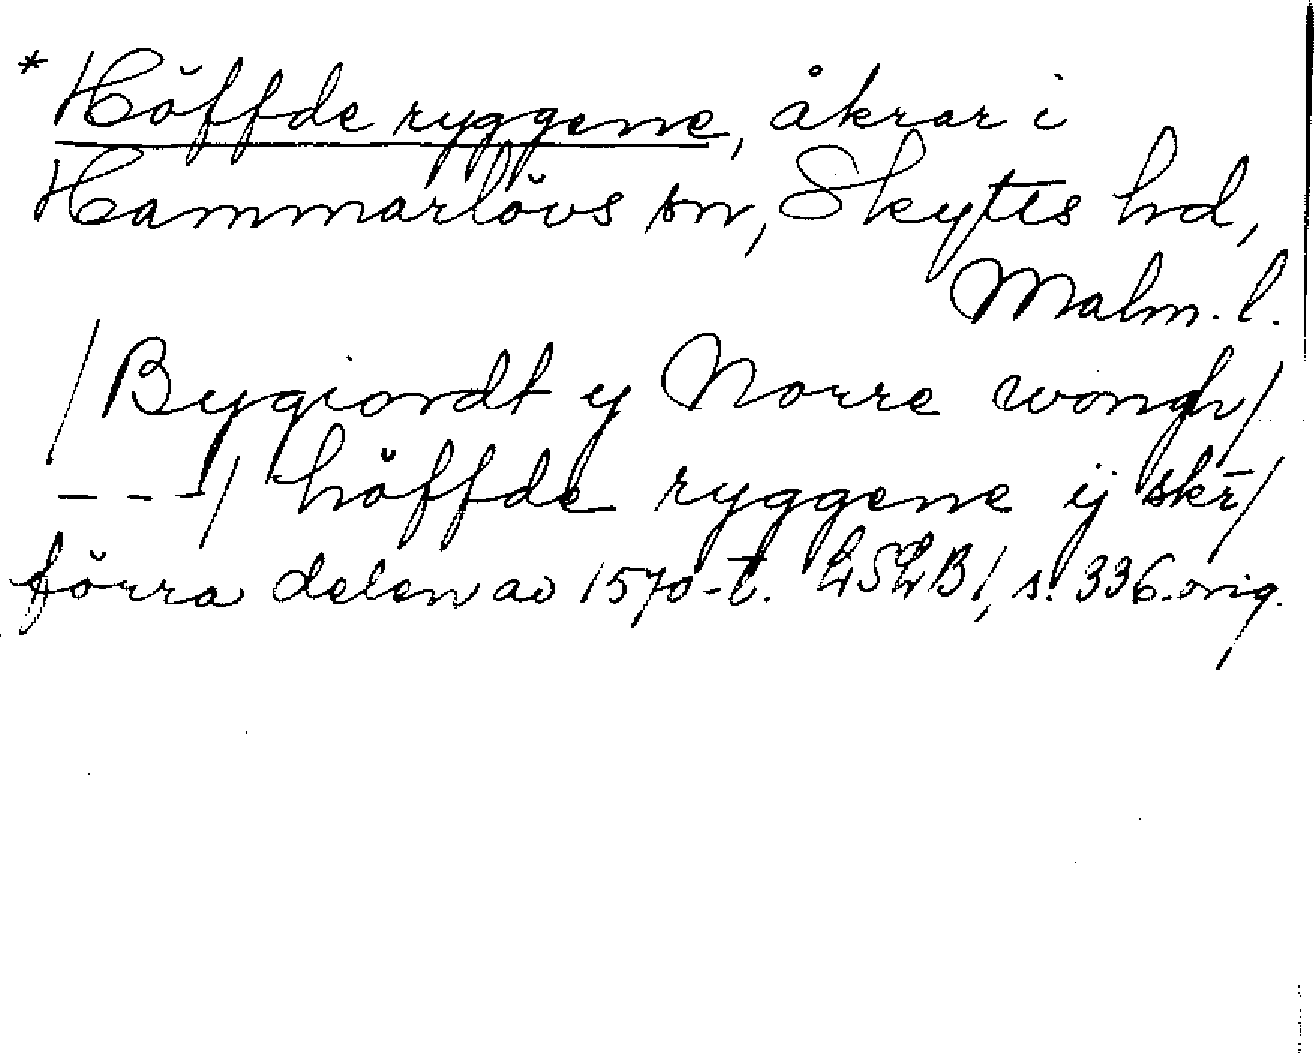 * Höffde ryggene, åkrar i
Hammarlövs sn, Skytts hd,
Malm. l.
/Bygiordt y Norre wongh/
---/ höffde ryggene ij skr̄/
förra delen av 1570-t. LSLB 1, s. 336. orig.